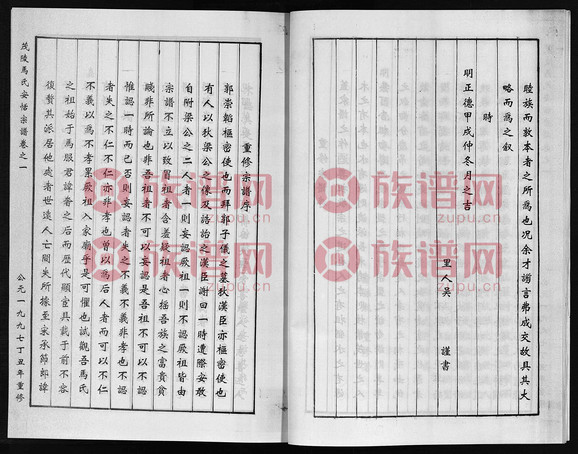 睦族而敦本者之所為也况余才謭言弗成文故具其大
略而為之叙
時
明正德甲戌仲冬月之吉
里人吴 謹書
重修宗譜序
郭崇韜樞密使也而拜郭子儀之墓狄漢臣亦樞密使也
有人以狄梁公之像及誥詒之漢臣謝曰一時遭際安敢
自附梁公之二人者一則妄認厥祖一則不認厥祖皆由
宗譜不立以致冒祖者含羞疑祖者心搖吾族之富貴貧
賤非所論也非吾祖者不可以妄認是吾祖不可以不認
惟認一時而已否則妄認者失之不義不義非孝也不認
者失之不仁不仁亦非孝也曾以為后人者而可以不仁
不義以為不孝累厥祖入家廟乎是可懼也試觀吾馬氏
之祖始于馬服君諱奢之后而歷代顯宦具載于前不容
復贅其派居他處者世遠人亡闕失所據至宋承節郎諱
茂陵馬氏安恬宗譜卷之一
公元一九九七丁丑年重修
族谱网
zupu.cn
族谱网
zupu.cn
族谱网
zupu.cn
族谱网
zupu.cn